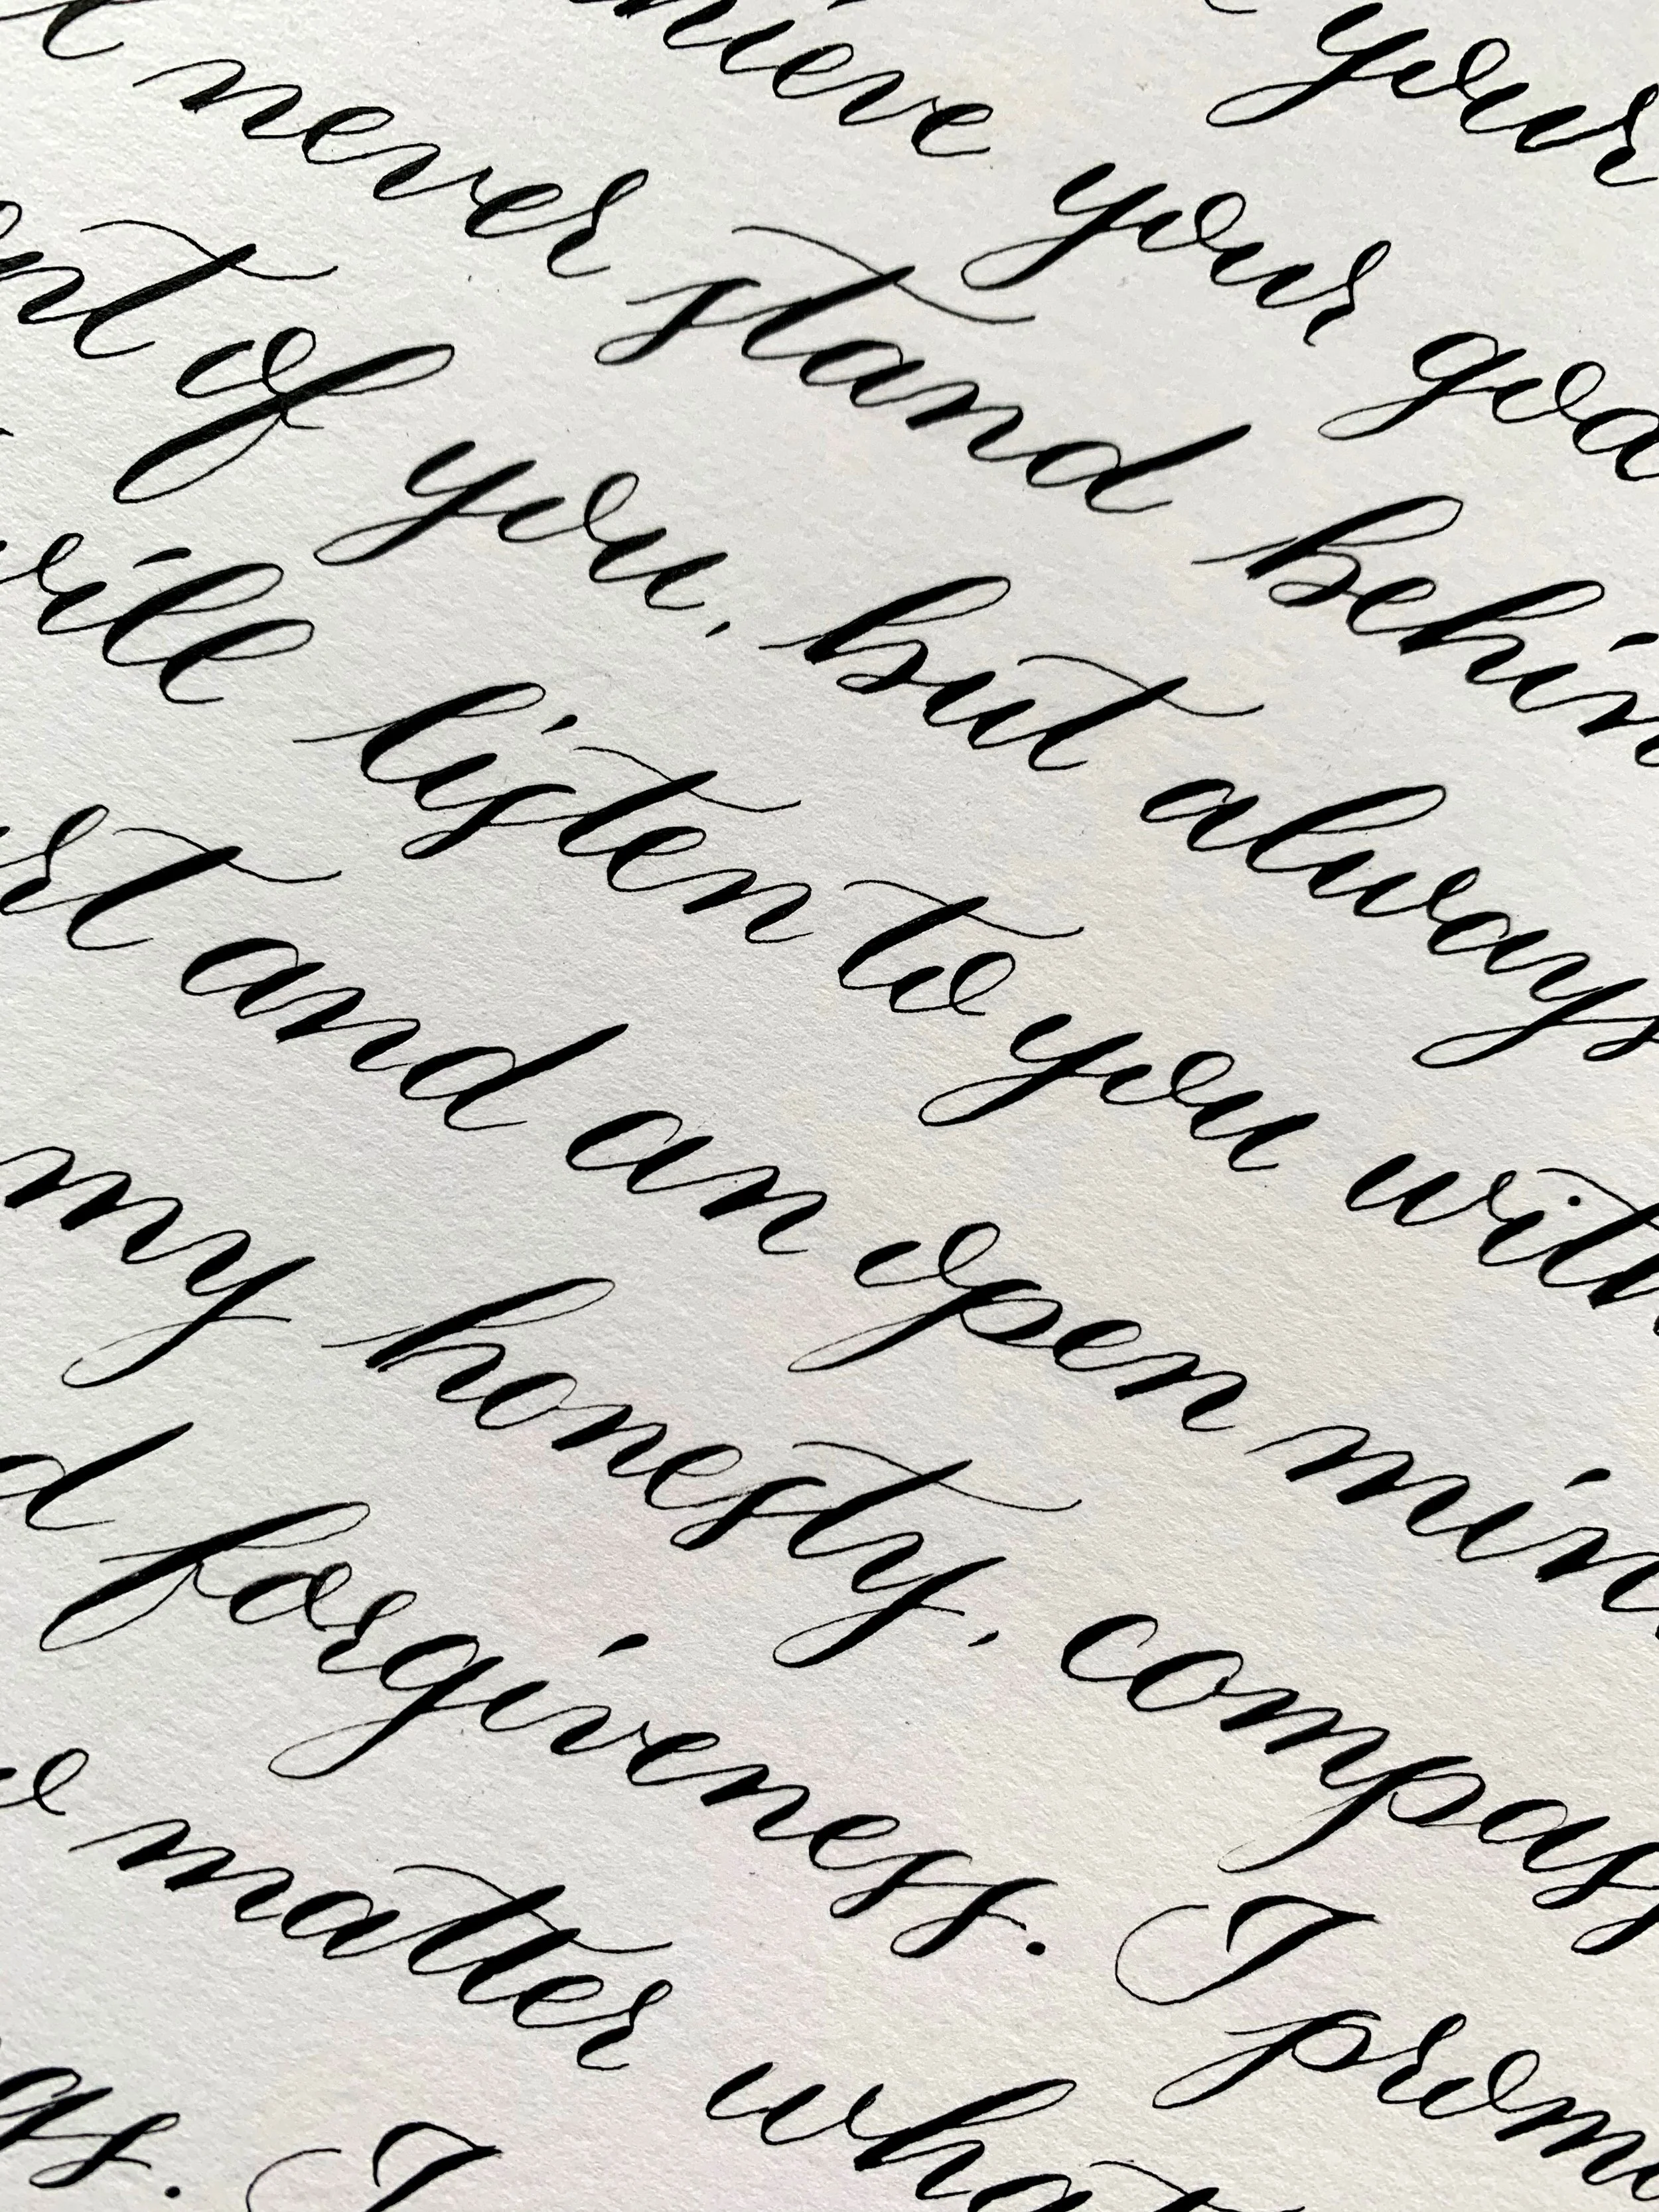 your
hieve your goa
never stand behin
nt of you, but always
ill listen to you with
rt and an open min
my honesty, compass
d forgiveness. I prom
o matter what
gs. I